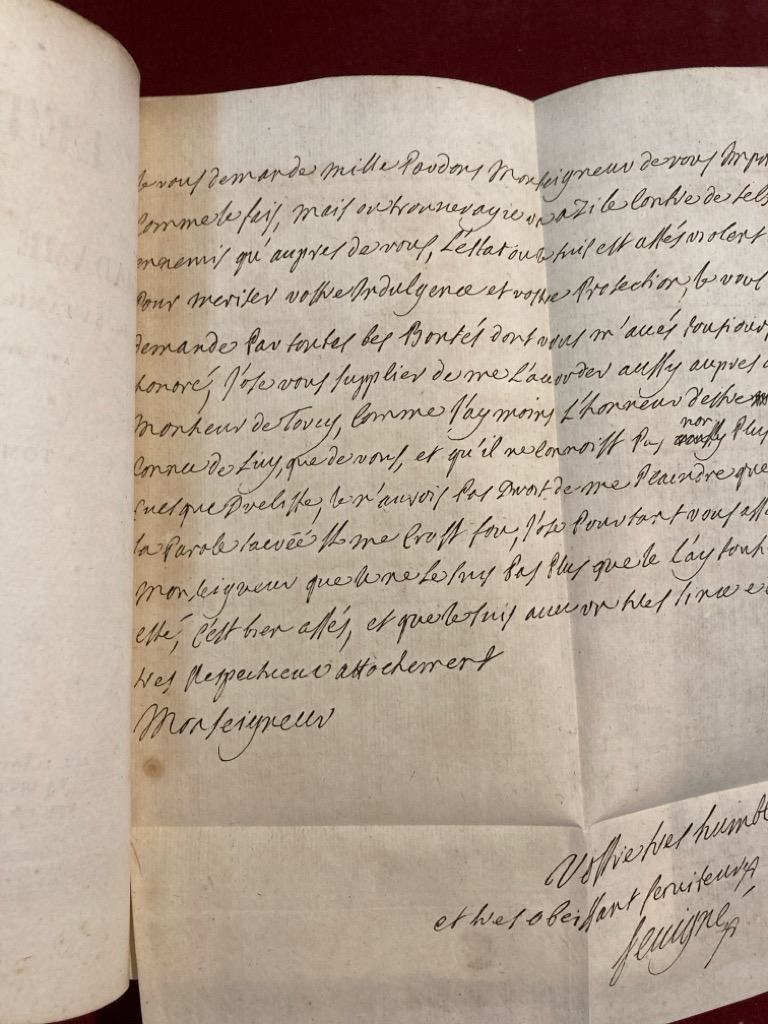 Je vous demande mille Pardons Monseigneur de vous Impor
Comme Je fais, mais ou trouveray ie un aZile Contre de tels
ennemis qu'aupres de vous, L'Estat ou Je suis est assés violent
Pour meriter vostre Indulgence et vostre Protection, Je vous
demande Par toutes les Bontés dont vous m'avés tousiours
honoré, J'ose vous supplier de me L'accorder aussy aupres d
Monsieur de Torcy, Comme J'ay moins L'honneur d'estre
Connu de Luy, que de vous, et qu'il ne Connoist Pas non Plus
Je n'aurois Pas Droit de me Plaindre que
la Parole sacréé me Crust fou, J'ose Pourtant vous ass
Monseigneur que Je ne Le suis Pas Plus que Je L'ay tous
esté, C'est bien assés, et que Je suis avec un tres sincere e
tres Respectueux attachement
Monseigneur
Vostre tres humbl
et tres obeissant serviteur
sevigné